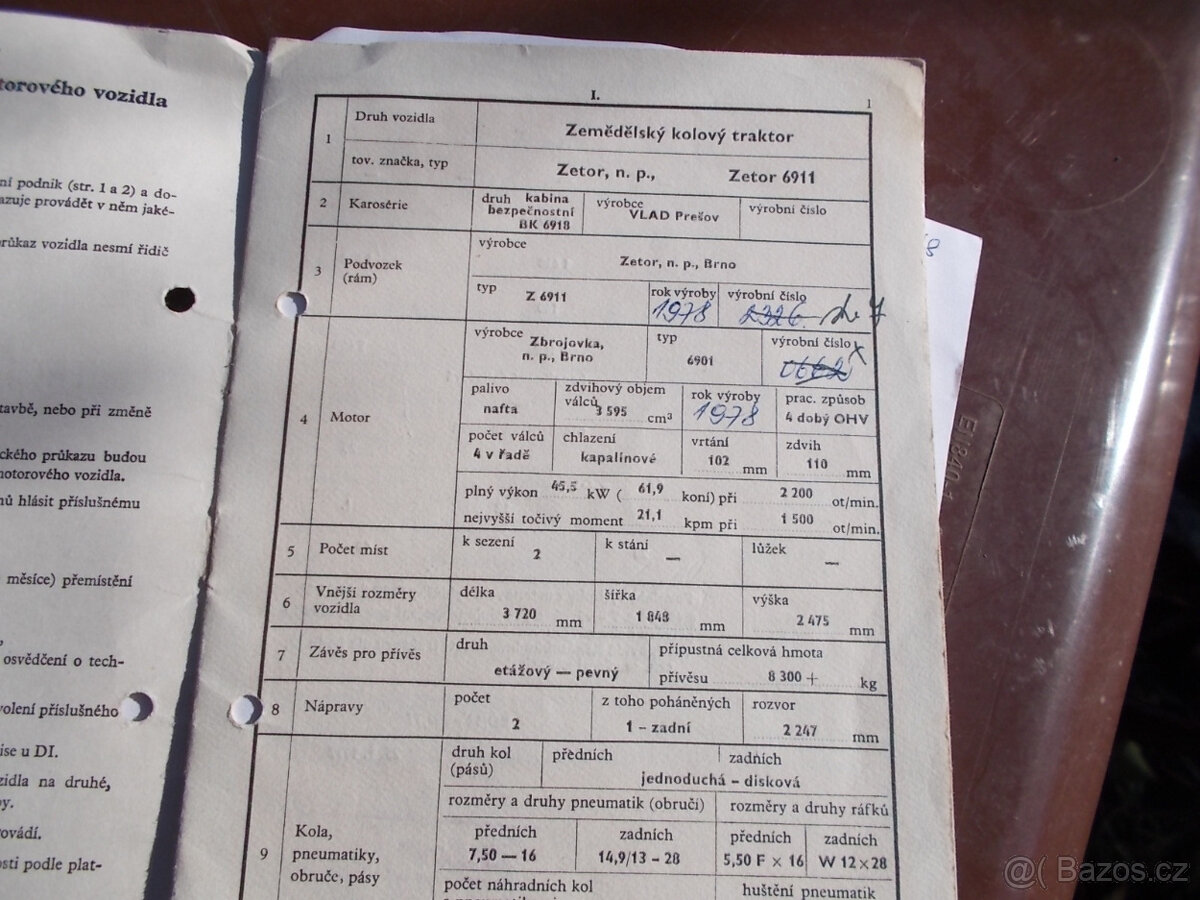 torového vozidla
ní podnik (str. 1 a 2) a do-
azuje provádět v něm jaké-
růkaz vozidla nesmí řidič
tavbě, nebo při změně
ckého průkazu budou
motorového vozidla.
nů hlásit příslušnému
měsíce) přemístění
osvědčení o tech-
volení příslušného
ise u DI.
zidla na druhé,
by.
rovádí.
osti podle plat-
I.
1
1 Druh vozidla Zemědělský kolový traktor
tov. značka, typ Zetor, n. p., Zetor 6911
2 Karosérie druh kabina bezpečnostní BK 6918 výrobce VLAD Prešov výrobní číslo
3 Podvozek (rám) výrobce Zetor, n. p., Brno
typ Z 6911 rok výroby 1978 výrobní číslo 2326
4 Motor výrobce Zbrojovka, n. p., Brno typ 6901 výrobní číslo
palivo nafta zdvihový objem válců 3 595 cm³ rok výroby 1978 prac. způsob 4 dobý OHV
počet válců 4 v řadě chlazení kapalinové vrtání 102 mm zdvih 110 mm
plný výkon 45,5 kW ( 61,9 koní) při 2 200 ot/min.
nejvyšší točivý moment 21,1 kpm při 1 500 ot/min.
5 Počet míst k sezení 2 k stání — lůžek —
6 Vnější rozměry vozidla délka 3 720 mm šířka 1 848 mm výška 2 475 mm
7 Závěs pro přívěs druh etážový — pevný přípustná celková hmota přívěsu 8 300 + kg
8 Nápravy počet 2 z toho poháněných 1 - zadní rozvor 2 247 mm
9 Kola, pneumatiky, obruče, pásy druh kol (pásů) předních zadních
jednoduchá - disková
rozměry a druhy pneumatik (obručí) rozměry a druhy ráfků
předních 7,50 — 16 zadních 14,9/13 - 28 předních 5,50 F × 16 zadních W 12×28
počet náhradních kol huštění pneumatik
8
E1840-1
@( Bazos.cz